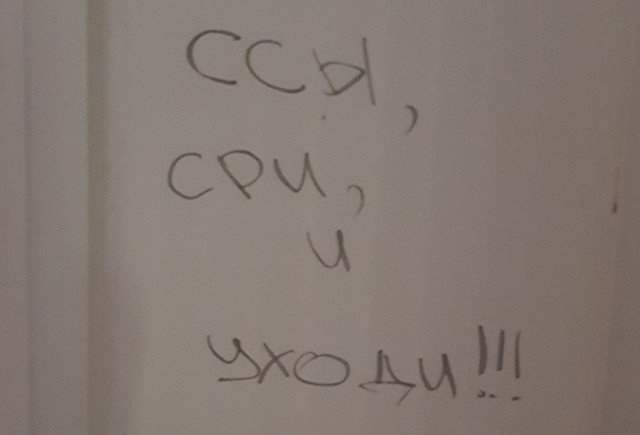 ССЫ,
СРИ,
И
УХОДИ!!!